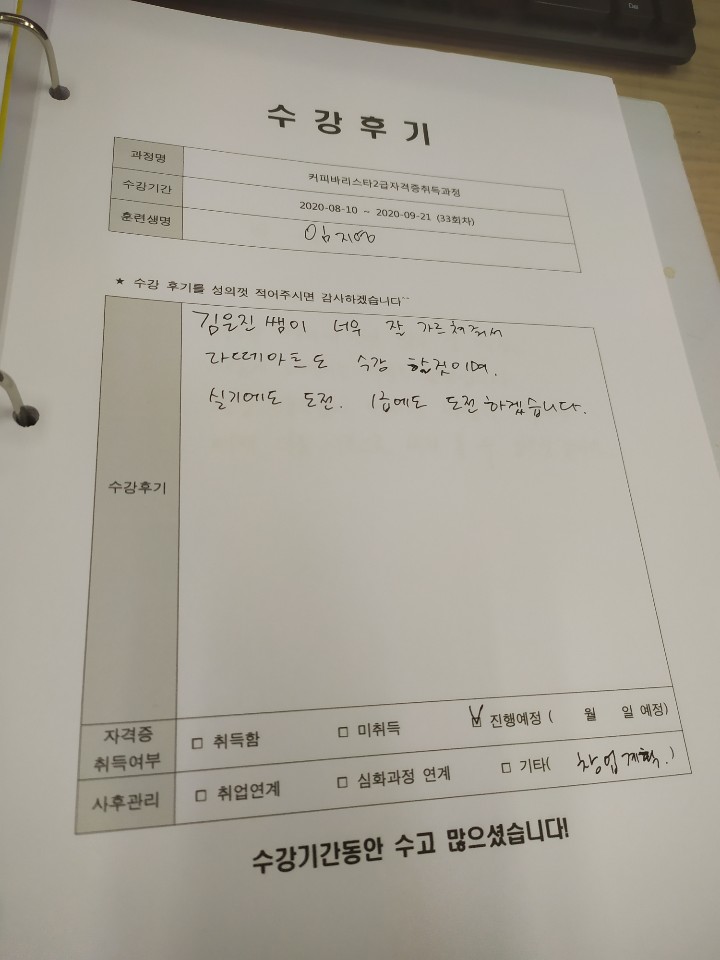 수 강 후 기
과정명 커피바리스타2급자격증취득과정
수강기간 2020-08-10 ~ 2020-09-21 (33회차)
훈련생명 임지영
★ 수강 후기를 성의껏 적어주시면 감사하겠습니다~~
김은진 쌤이 너무 잘 가르쳐줘서
라떼아트도 수강 할것이며.
수강후기
실기에도 도전. 1급에도 도전하겠습니다.
자격증 취득여부 □ 취득함 □ 미취득 ☑ 진행예정 ( 월 일 예정)
사후관리 □ 취업연계 □ 심화과정 연계 □ 기타( 창업계획.)
수강기간동안 수고 많으셨습니다!